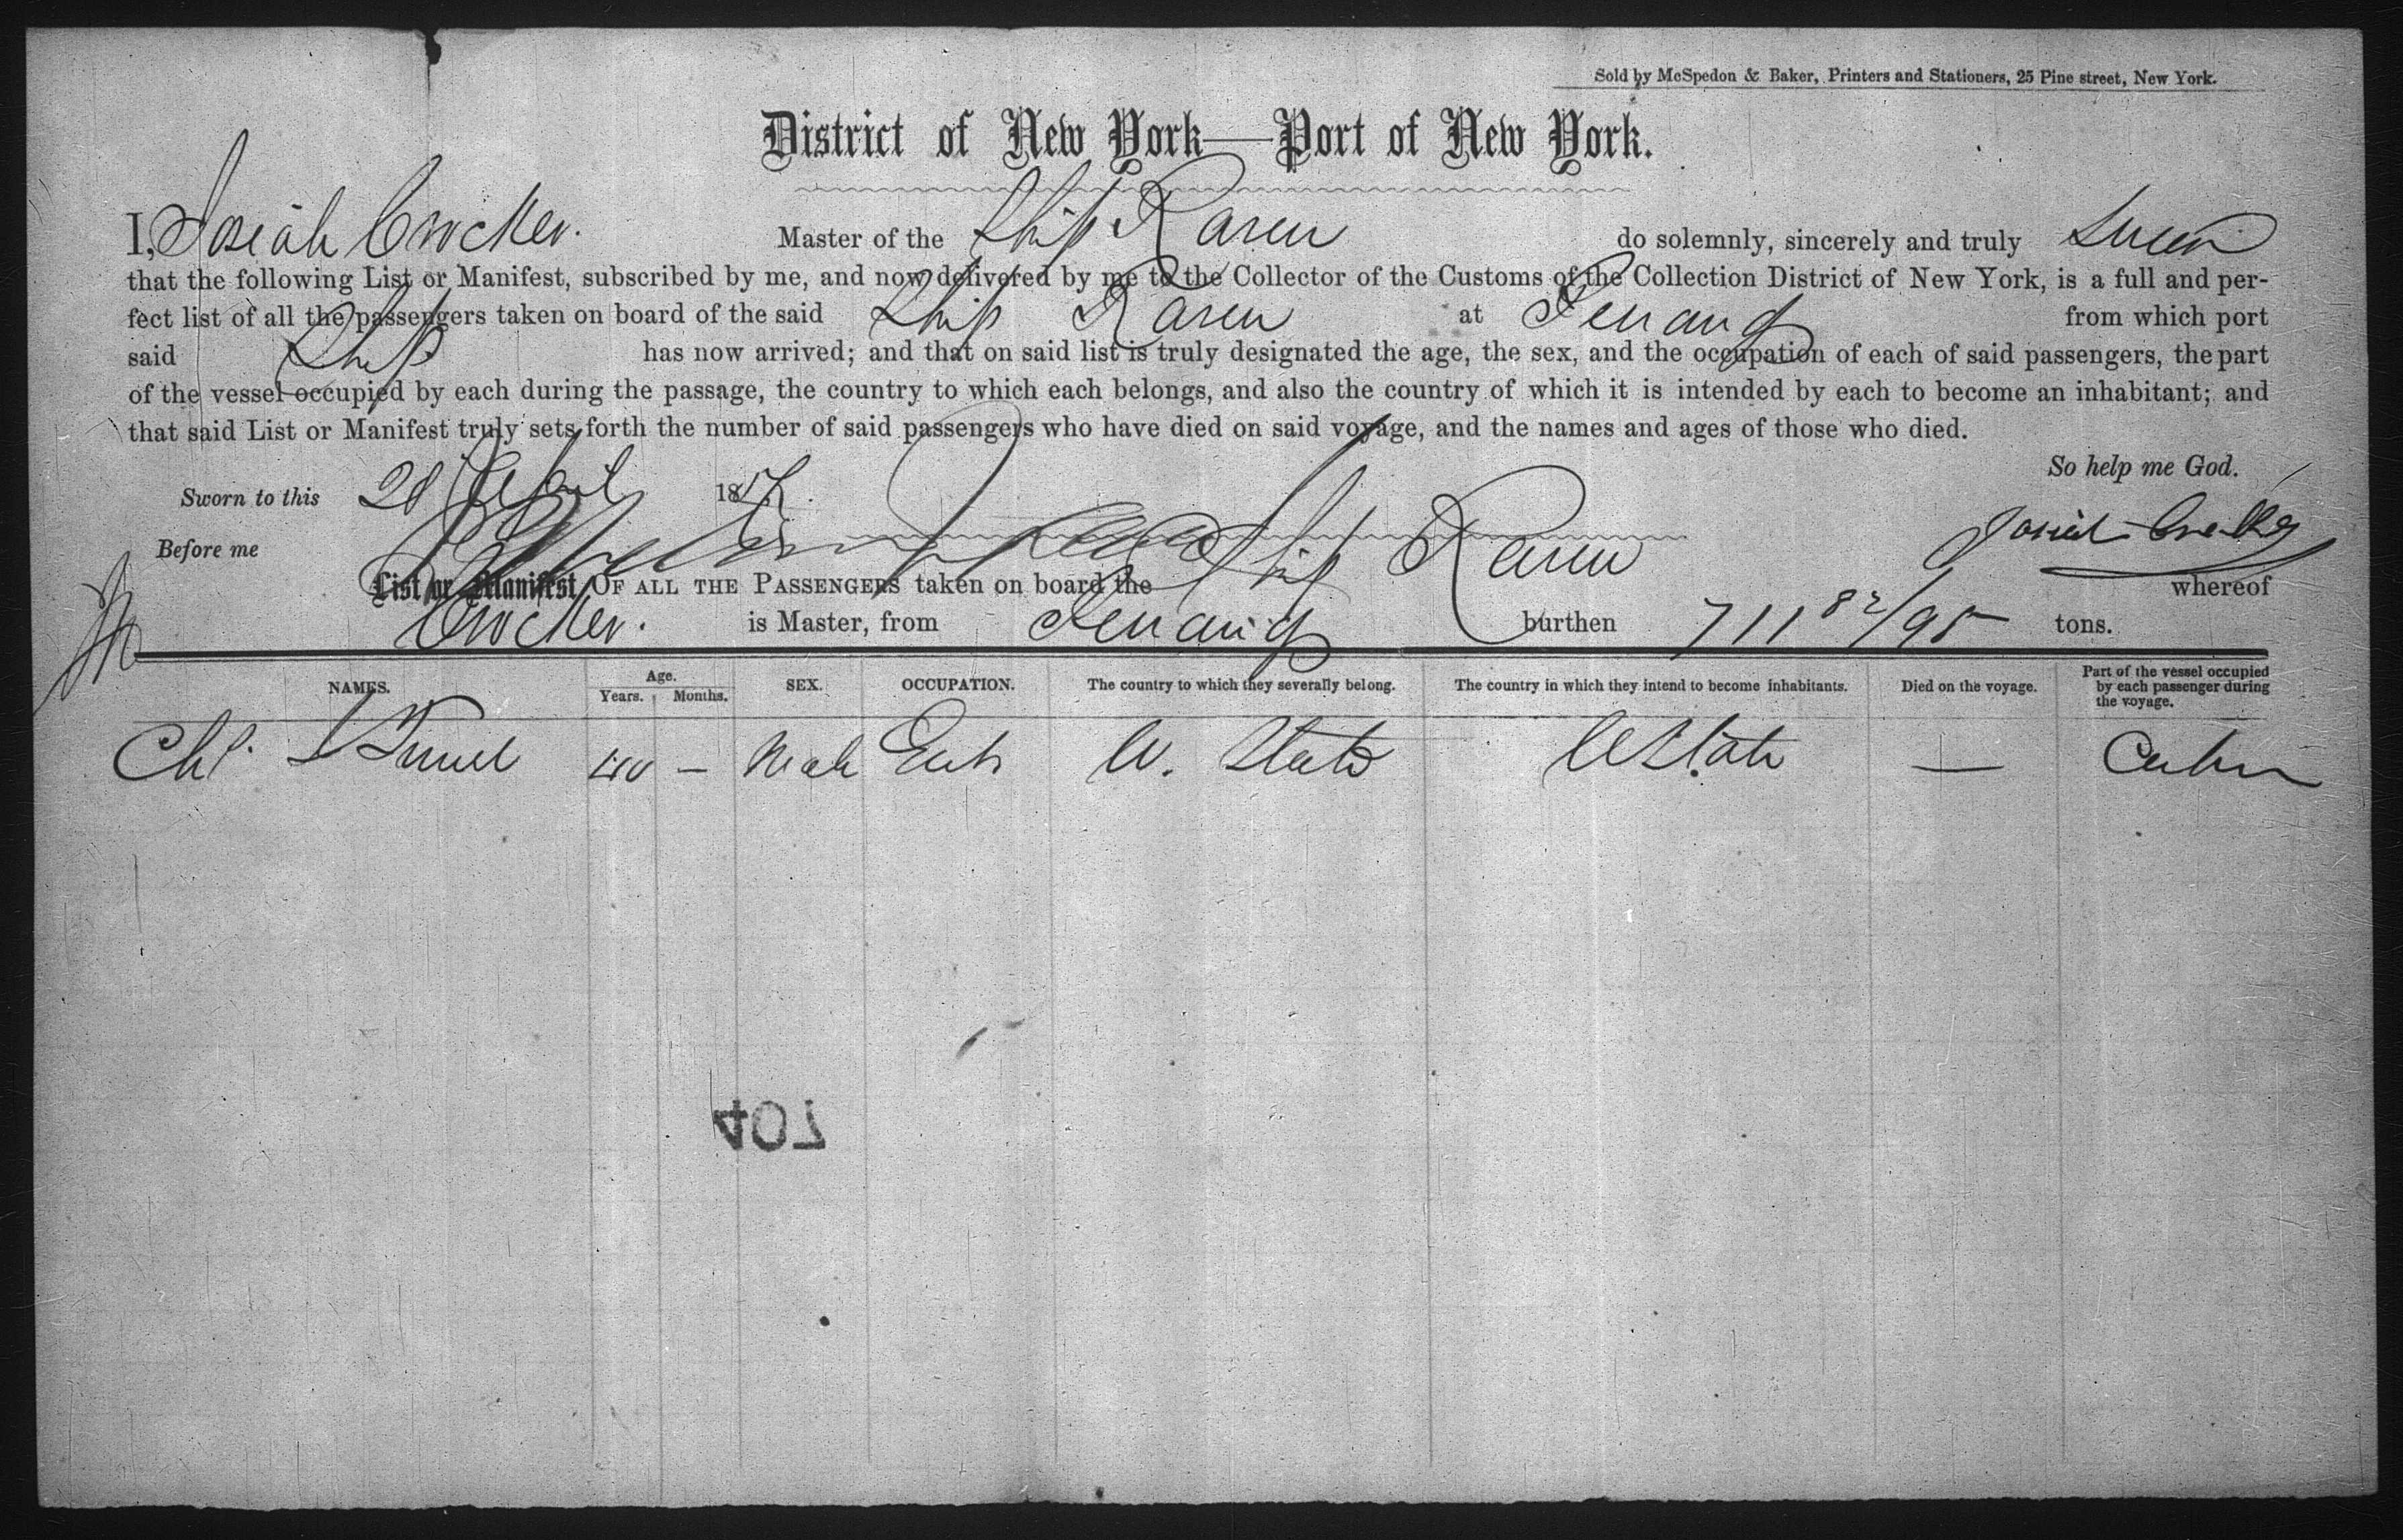 Sold by McSpedon & Baker, Printers and Stationers, 25 Pine street, New York.
District of New York—Port of New York.
I, Josiah Crocker. Master of the Ship Raven do solemnly, sincerely and truly Swear
that the following List or Manifest, subscribed by me, and now delivered by me to the Collector of the Customs of the Collection District of New York, is a full and per-
fect list of all the passengers taken on board of the said Ship Raven at Penang from which port
said Ship has now arrived; and that on said list is truly designated the age, the sex, and the occupation of each of said passengers, the part
of the vessel occupied by each during the passage, the country to which each belongs, and also the country of which it is intended by each to become an inhabitant; and
that said List or Manifest truly sets forth the number of said passengers who have died on said voyage, and the names and ages of those who died.
So help me God.
Sworn to this 28 April 1857.
Josiah Crocker
Before me
List or Manifest OF ALL THE PASSENGERS taken on board the Ship Raven whereof
Crocker. is Master, from Penang burthen 711 82/95 tons.
NAMES. Age. Years. Months. SEX. OCCUPATION. The country to which they severally belong. The country in which they intend to become inhabitants. Died on the voyage. Part of the vessel occupied by each passenger during the voyage.
40 — Male U. States U States — Cabin
407